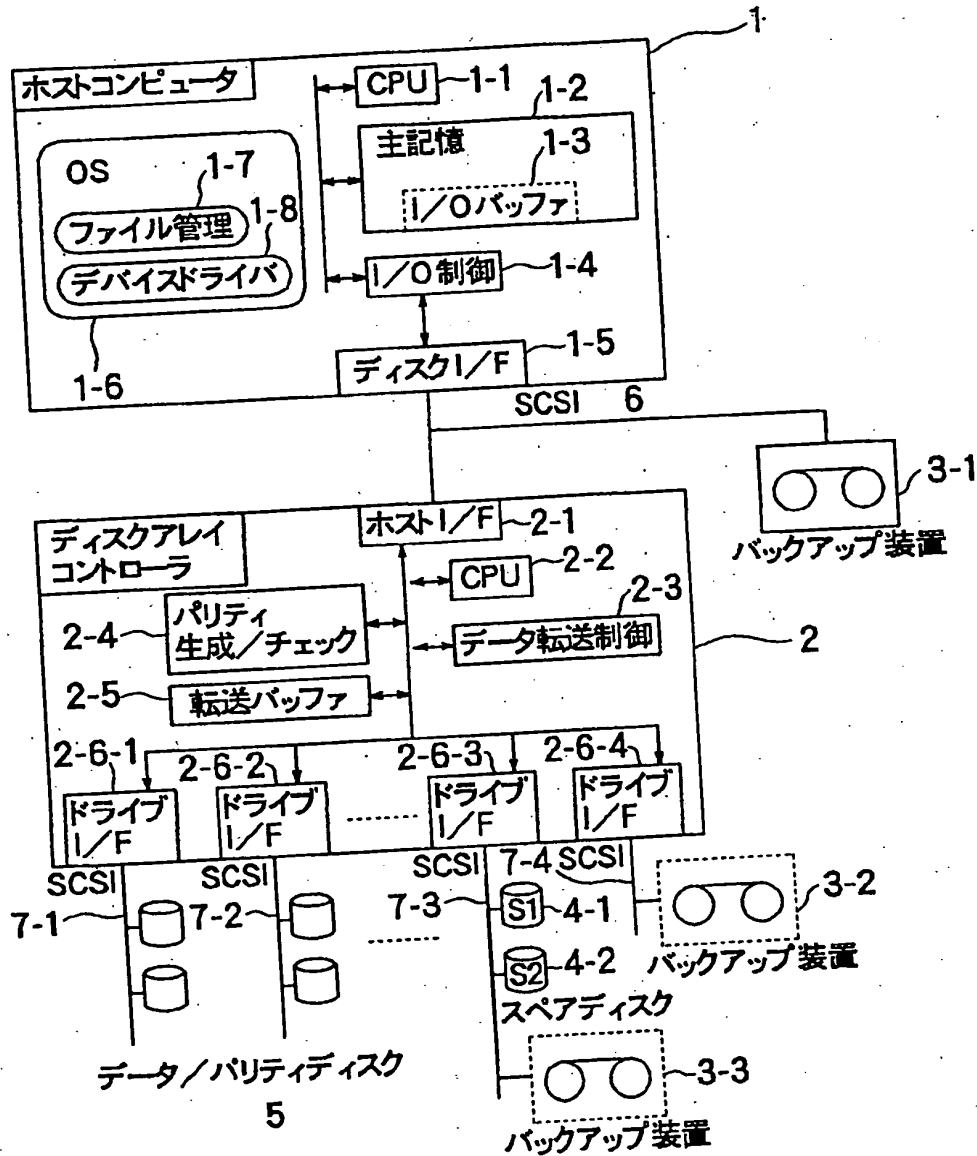 1
ホストコンピュータ
CPU
1-1
1-2
主記憶
1-3
I/Oバッファ
OS
1-7
ファイル管理
1-8
デバイスドライバ
I/O制御
1-4
1-6
ディスクI/F
1-5
SCSI 6
3-1
バックアップ装置
ディスクアレイ
コントローラ
ホストI/F
2-1
CPU
2-2
2-3
2-4
パリティ
生成/チェック
データ転送制御
2
2-5
転送バッファ
2-6-1
2-6-2
2-6-3
2-6-4
ドライブ
I/F
ドライブ
I/F
ドライブ
I/F
ドライブ
I/F
SCSI
SCSI
SCSI
7-4
SCSI
7-1
7-2
7-3
S1
4-1
3-2
バックアップ装置
S2
4-2
スペアディスク
データ/パリティディスク
5
3-3
バックアップ装置